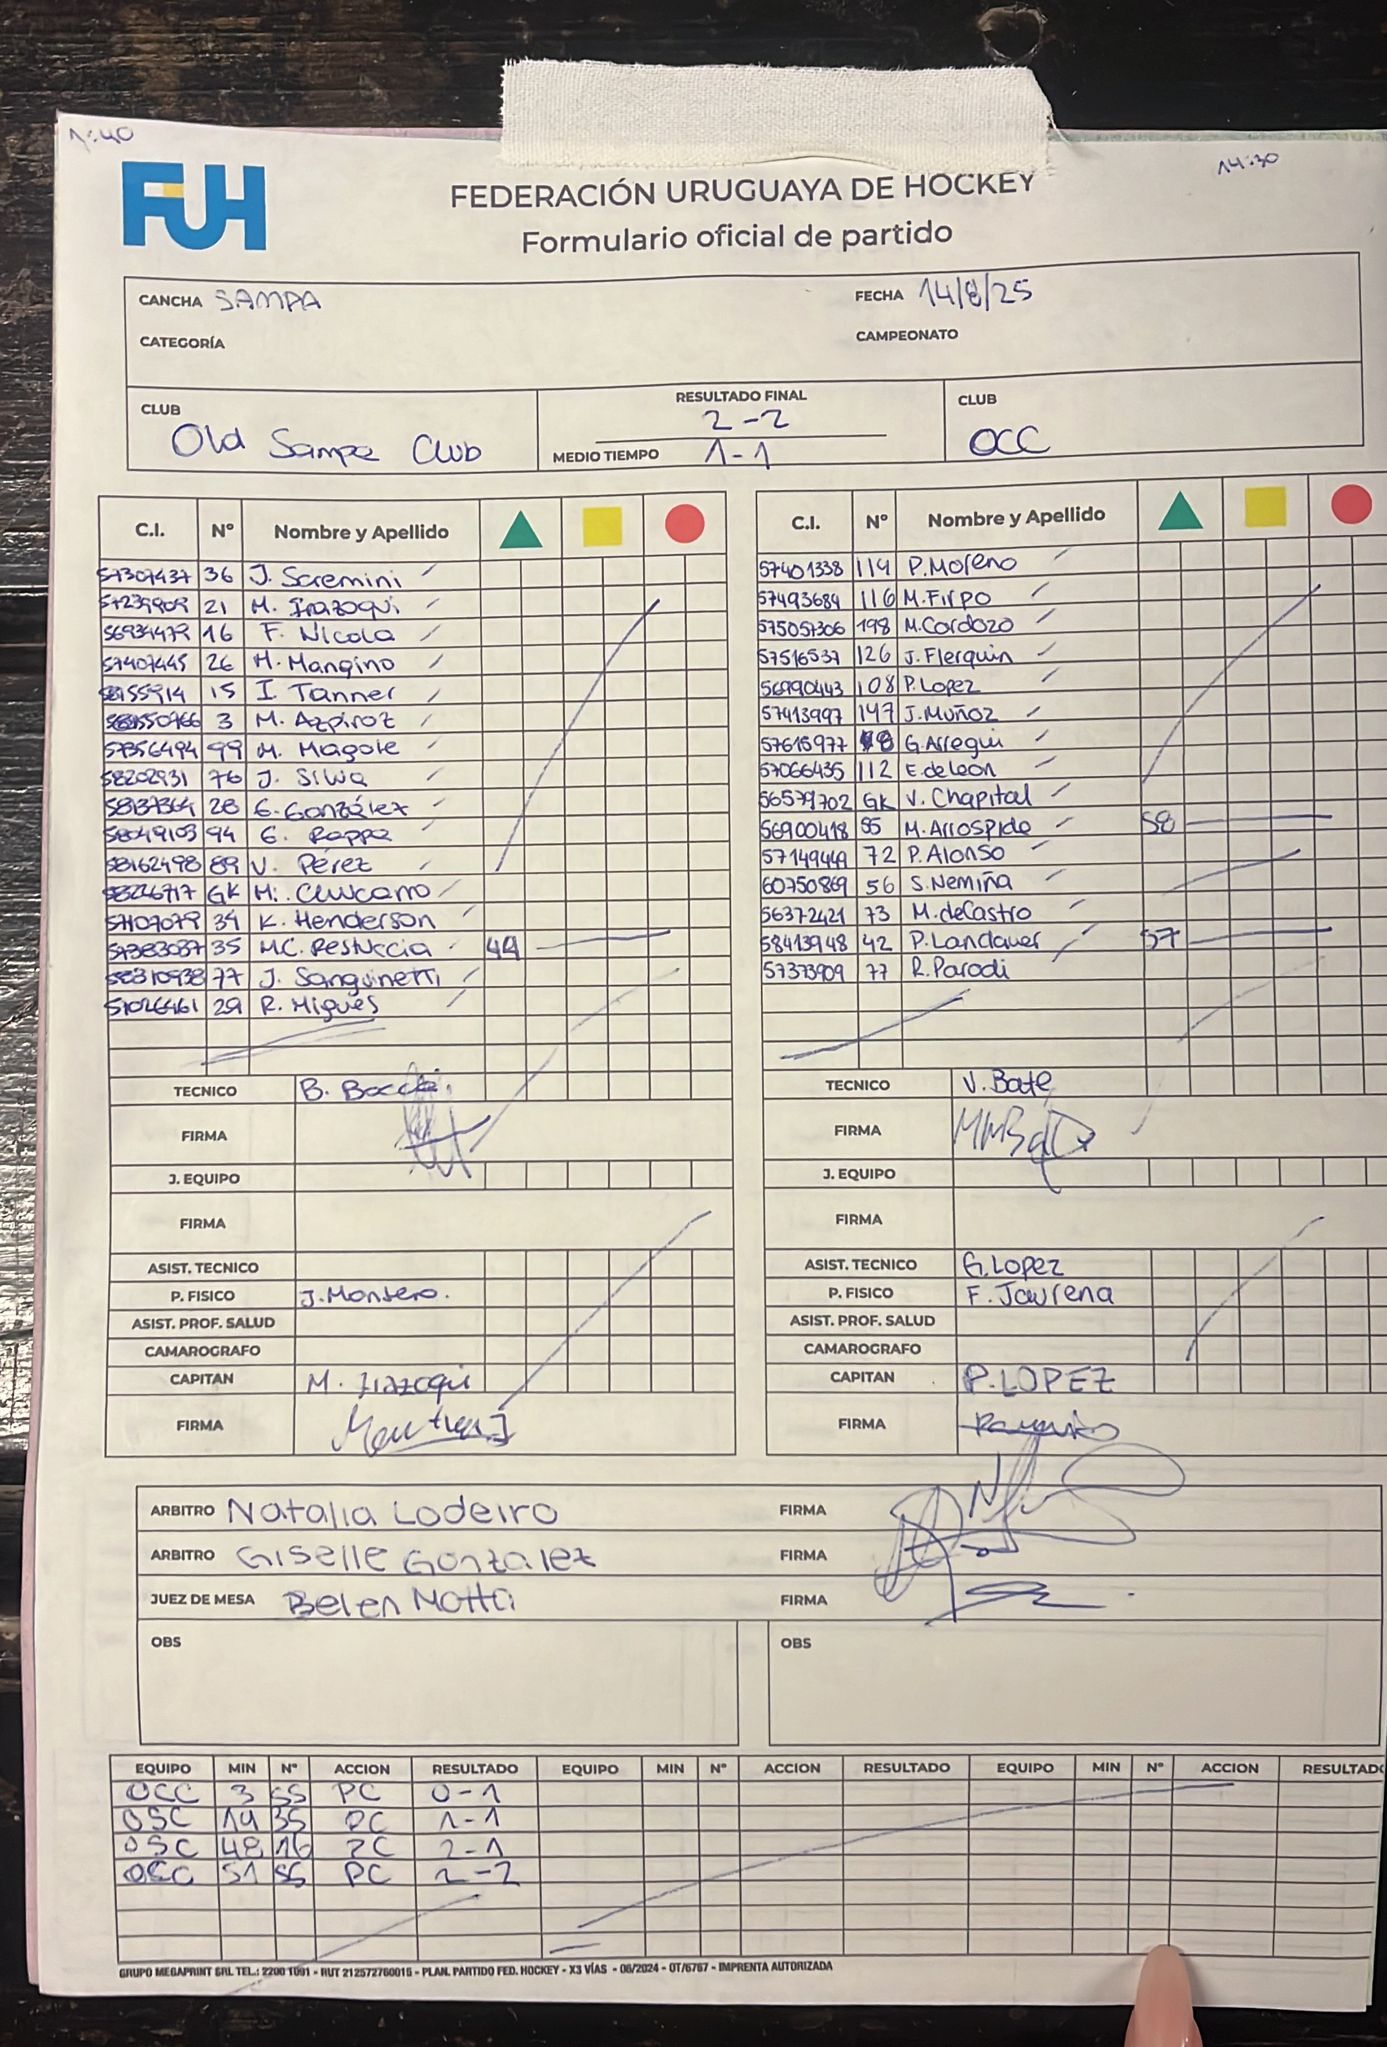 14:30
FUH
FEDERACIÓN URUGUAYA DE HOCKEY
Formulario oficial de partido
CANCHA SAMPA
FECHA 14/8/25
CATEGORÍA
CAMPEONATO
CLUB Old Sampa Club
RESULTADO FINAL 2-2
MEDIO TIEMPO 1-1
CLUB OCC
C.I. Nº Nombre y Apellido
57307437 36 J. Scremini
21 M. Irazoqui
56934479 16 F. Nicola
57407445 26 M. Mangino
15 I. Tanner
3 M. Azpiroz
57356494 99 M. Magole
58202931 76 J. Silva
58137364 28 G. González
58049103 94 G. Rappa
58162498 89 V. Pérez
GK
34 K. Henderson
57383037 35 M.C. Restuccia 44
58310938 77 J. Sanguinetti
57026461 29 R. Migués
TECNICO B.
FIRMA
J. EQUIPO
FIRMA
ASIST. TECNICO
P. FISICO J. Montero.
ASIST. PROF. SALUD
CAMAROGRAFO
CAPITAN M. Irazoqui
FIRMA
C.I. Nº Nombre y Apellido
57401338 114 P. Moreno
57493684 116 M. Firpo
575051306 198 M. Cardozo
57516537 126 J. Flerquin
56990443 108 P. Lopez
57413997 147 J. Muñoz
57615977 G. Arregui
57066435 112 E. de León
56579702 GK V. Chapital
56900418 55 M. Arrospide 58
57149449 72 P. Alonso
60750869 56 S. Nemiña
56372421 73 M. deCastro
58413948 42 P. Landauer 57
57373909 77 R. Parodi
TECNICO V. Bate
FIRMA
J. EQUIPO
FIRMA
ASIST. TECNICO G. Lopez
P. FISICO F. Jaurena
ASIST. PROF. SALUD
CAMAROGRAFO
CAPITAN P. LOPEZ
FIRMA
ARBITRO Natalia Lodeiro FIRMA
ARBITRO Giselle Gonzalez FIRMA
JUEZ DE MESA Belen Motta FIRMA
OBS
OBS
EQUIPO MIN Nº ACCION RESULTADO EQUIPO MIN Nº ACCION RESULTADO EQUIPO MIN Nº ACCION RESULTADO
OCC 3 55 PC 0-1
OSC 19 35 PC 1-1
OSC 48 16 PC 2-1
51 55 PC 2-2
GRUPO MEGAPRINT SRL TEL.: 2200 1091 - RUT 212572760015 - PLAN. PARTIDO FED. HOCKEY - X3 VÍAS - 08/2024 - OT/6767 - IMPRENTA AUTORIZADA